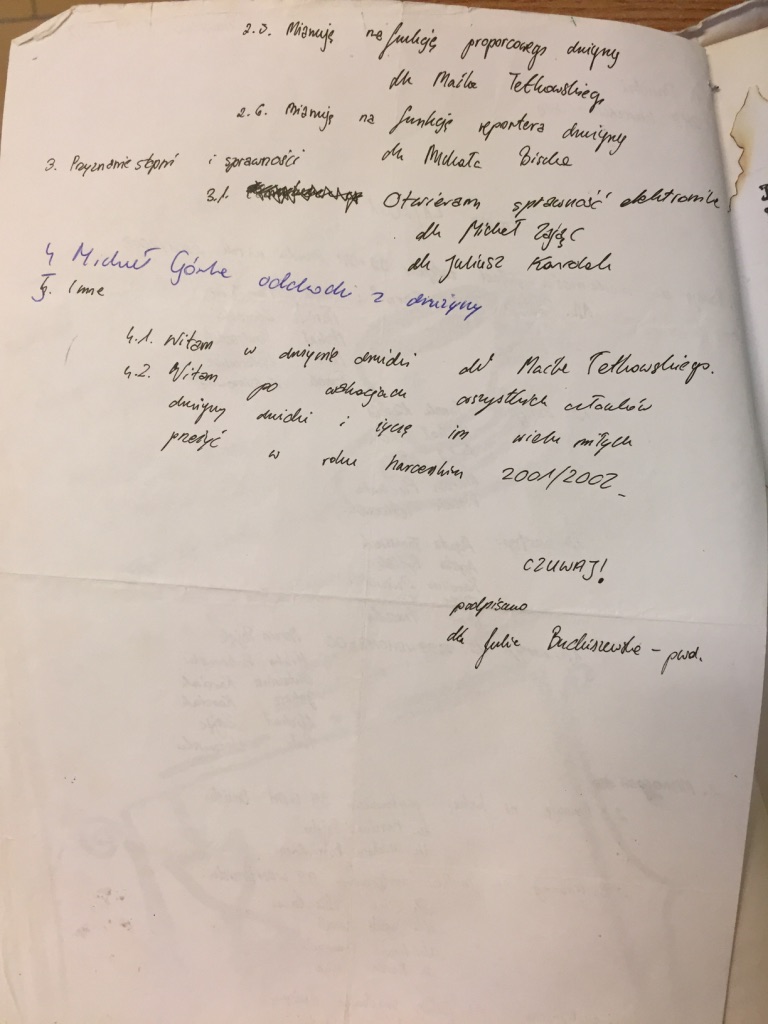 2.5. Mianuję na funkcję proporcowego drużyny
dh Maćka Tetkowskiego
2.6. Mianuję na funkcję reportera drużyny
dh Michała
3. Przyznanie stopni i sprawności
3.1. Otwieram sprawność elektronika
dh Michał Zając
dh Juliusz Karolak
4 Michał Górka odchodzi z drużyny
5. Inne
4.1. Witam w drużynie druha dh Maćka Tetkowskiego.
4.2. Witam po wakacjach wszystkich członków
drużyny i życzę im wielu miłych
przeżyć w roku harcerskim 2001/2002
CZUWAJ!
podpisano
dh Julia – pwd.